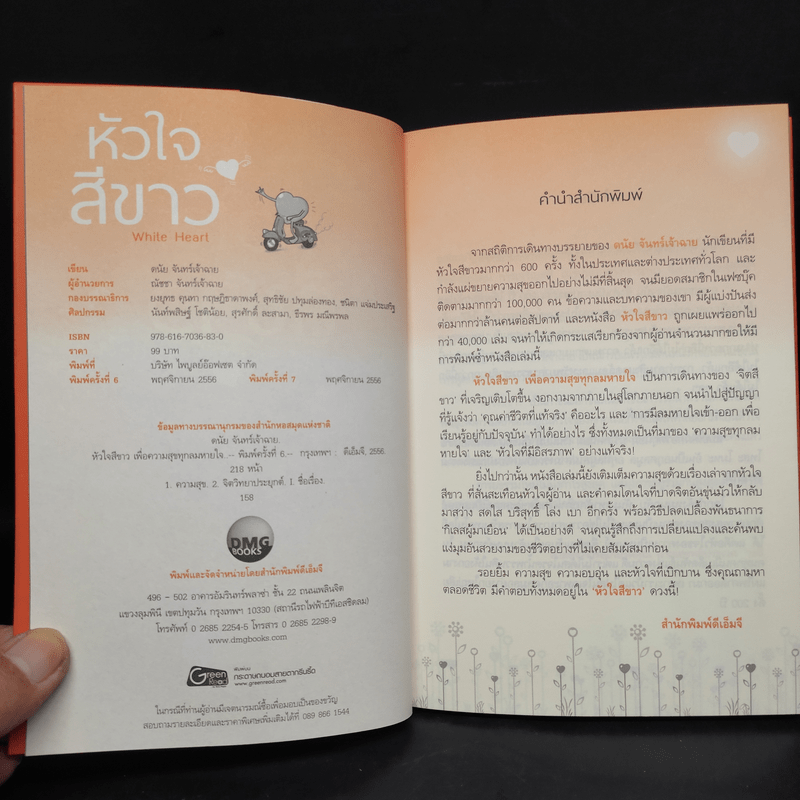 หัวใจ
สีขาว
White Heart
เขียน ดนัย จันทร์เจ้าฉาย
ผู้อำนวยการ ณัชชา จันทร์เจ้าฉาย
กองบรรณาธิการ ยงยุทธ คุนทา กฤษฎิ์ธาดาพงศ์, สุทธิชัย ปทุมล่องทอง, ชนิตา แจ่มประเสริฐ
ศิลปกรรม นันท์พสิษฐ์ โชติน้อย, สุรศักดิ์ ละสามา, ธีรพร มณีพรพล
ISBN 978-616-7036-83-0
ราคา 99 บาท
พิมพ์ที่ บริษัท ไพบูลย์อ๊อฟเซต จำกัด
พิมพ์ครั้งที่ 6 พฤศจิกายน 2556 พิมพ์ครั้งที่ 7 พฤศจิกายน 2556
ข้อมูลทางบรรณานุกรมของสำนักหอสมุดแห่งชาติ
ดนัย จันทร์เจ้าฉาย.
หัวใจสีขาว เพื่อความสุขทุกลมหายใจ.-- พิมพ์ครั้งที่ 6.-- กรุงเทพฯ : ดีเอ็มจี, 2556.
218 หน้า
1. ความสุข. 2. จิตวิทยาประยุกต์. I. ชื่อเรื่อง.
158
DMG
BOOKS
พิมพ์และจัดจำหน่ายโดยสำนักพิมพ์ดีเอ็มจี
496 - 502 อาคารอัมรินทร์พลาซ่า ชั้น 22 ถนนเพลินจิต
แขวงลุมพินี เขตปทุมวัน กรุงเทพฯ 10330 (สถานีรถไฟฟ้าบีทีเอสชิดลม)
โทรศัพท์ 0 2685 2254-5 โทรสาร 0 2685 2298-9
www.dmgbooks.com
Green
Read
พิมพ์บน
กระดาษถนอมสายตากรีนรี้ด
www.greenread.com
ในกรณีที่ท่านผู้อ่านมีเจตนารมณ์ซื้อเพื่อมอบเป็นของขวัญ
สอบถามรายละเอียดและราคาพิเศษเพิ่มเติมได้ที่ 089 866 1544
คำนำสำนักพิมพ์
จากสถิติการเดินทางบรรยายของ ดนัย จันทร์เจ้าฉาย นักเขียนที่มี
หัวใจสีขาวมากกว่า 600 ครั้ง ทั้งในประเทศและต่างประเทศทั่วโลก และ
กำลังแผ่ขยายความสุขออกไปอย่างไม่มีที่สิ้นสุด จนมียอดสมาชิกในเฟซบุ๊ค
ติดตามมากกว่า 100,000 คน ข้อความและบทความของเขา มีผู้แบ่งปันส่ง
ต่อมากกว่าล้านคนต่อสัปดาห์ และหนังสือ หัวใจสีขาว ถูกเผยแพร่ออกไป
กว่า 40,000 เล่ม จนทำให้เกิดกระแสเรียกร้องจากผู้อ่านจำนวนมากขอให้มี
การพิมพ์ซ้ำหนังสือเล่มนี้
หัวใจสีขาว เพื่อความสุขทุกลมหายใจ เป็นการเดินทางของ ‘จิตสี
ขาว’ ที่เจริญเติบโตขึ้น งอกงามจากภายในสู่โลกภายนอก จนนำไปสู่ปัญญา
ที่รู้แจ้งว่า ‘คุณค่าชีวิตที่แท้จริง’ คืออะไร และ ‘การมีลมหายใจเข้า-ออก เพื่อ
เรียนรู้อยู่กับปัจจุบัน’ ทำได้อย่างไร ซึ่งทั้งหมดเป็นที่มาของ ‘ความสุขทุกลม
หายใจ’ และ ‘หัวใจที่มีอิสรภาพ’ อย่างแท้จริง!
ยิ่งไปกว่านั้น หนังสือเล่มนี้ยังเติมเต็มความสุขด้วยเรื่องเล่าจากหัวใจ
สีขาว ที่สั่นสะเทือนหัวใจผู้อ่าน และคำคมโดนใจที่บาดจิตอันขุ่นมัวให้กลับ
มาสว่าง สดใส บริสุทธิ์ โล่ง เบา อีกครั้ง พร้อมวิธีปลดเปลื้องพันธนาการ
‘กิเลสผู้มาเยือน’ ได้เป็นอย่างดี จนคุณรู้สึกถึงการเปลี่ยนแปลงและค้นพบ
แง่มุมอันสวยงามของชีวิตอย่างที่ไม่เคยสัมผัสมาก่อน
รอยยิ้ม ความสุข ความอบอุ่น และหัวใจที่เบิกบาน ซึ่งคุณถามหา
ตลอดชีวิต มีคำตอบทั้งหมดอยู่ใน ‘หัวใจสีขาว’ ดวงนี้!
สำนักพิมพ์ดีเอ็มจี